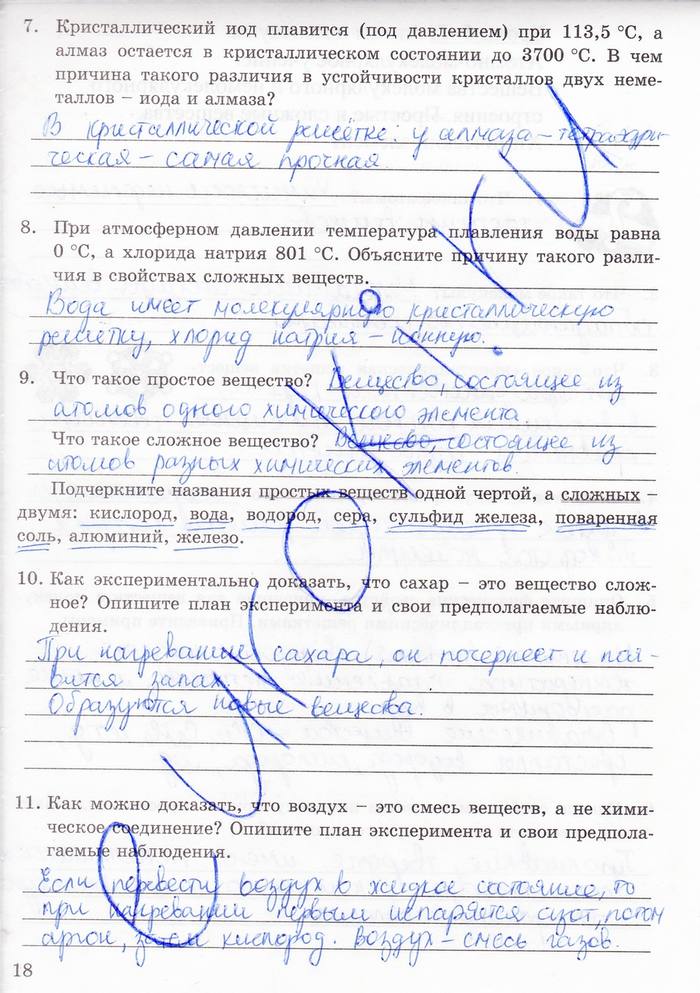 7. Кристаллический иод плавится (под давлением) при 113,5 °С, а
алмаз остается в кристаллическом состоянии до 3700 °С. В чем
причина такого различия в устойчивости кристаллов двух неме-
таллов – иода и алмаза?
В кристаллической решётке: у алмаза – тетраэдри-
ческая – самая прочная.
8. При атмосферном давлении температура плавления воды равна
0 °С, а хлорида натрия 801 °С. Объясните причину такого разли-
чия в свойствах сложных веществ.
Вода имеет молекулярную кристаллическую
решётку, хлорид натрия – ионную.
9. Что такое простое вещество? Вещество, состоящее из
атомов одного химического элемента
Что такое сложное вещество? Вещество, состоящее из
атомов разных химических элементов.
Подчеркните названия простых веществ одной чертой, а сложных –
двумя: кислород, вода, водород, сера, сульфид железа, поваренная
соль, алюминий, железо.
10. Как экспериментально доказать, что сахар – это вещество слож-
ное? Опишите план эксперимента и свои предполагаемые наблю-
дения.
При нагревание сахара, он почернеет и поя-
вятся запах
Образуются новые вещества.
11. Как можно доказать, что воздух – это смесь веществ, а не хими-
ческое соединение? Опишите план эксперимента и свои предпола-
гаемые наблюдения.
Если перевести воздух в жидкое состояние, то
при нагревании первым испаряется азот, потом
аргон, затем кислород. Воздух – смесь газов.
18